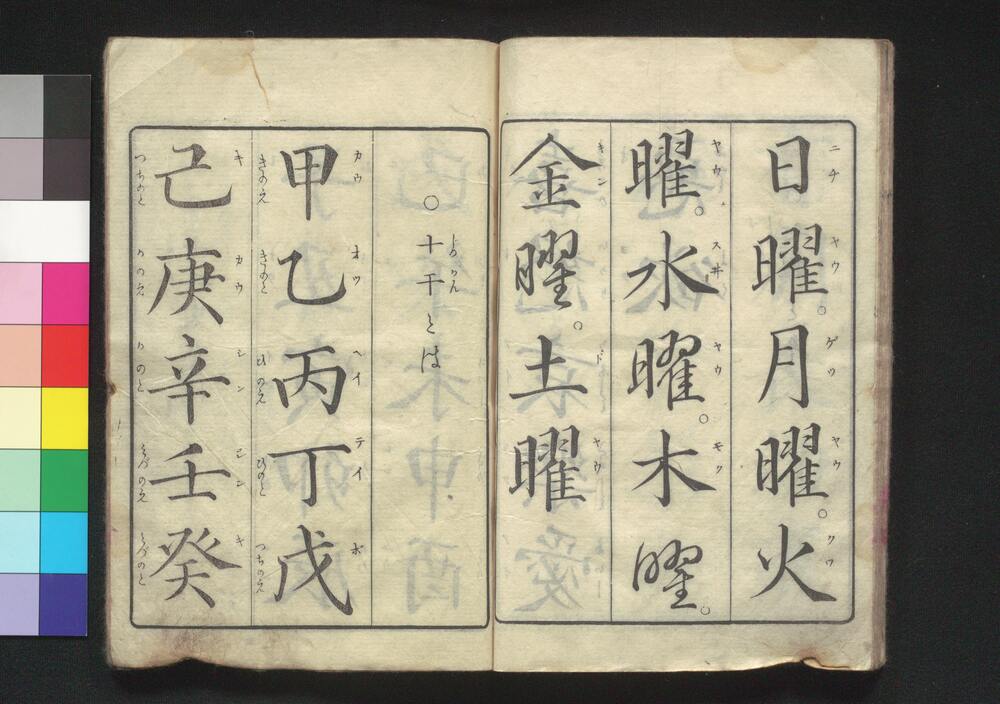 日曜。月曜。火
曜。水曜。木曜。
金曜。土曜
○十干とは
甲乙丙丁戊
己庚辛壬癸
ニチ ヤウ ゲツ ヤウ クワ
ヤウ スヰ ヤウ モク
キン ド ヤウ
カウ オツ ヘイ テイ ボ
きのえ きのと ひのえ ひのと つちのえ
キ カウ シン ジン キ
つちのと かのえ かのと みづのえ みづのと